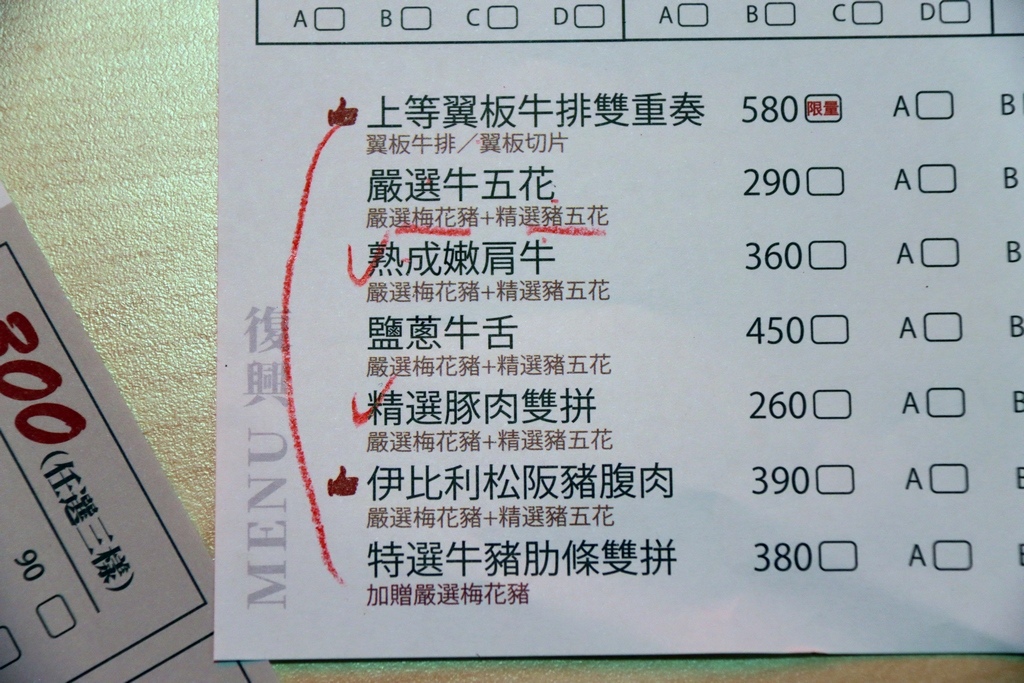 A B C D A B C D
上等翼板牛排雙重奏 580 限量 A B
翼板牛排／翼板切片
嚴選牛五花 290 A B
嚴選梅花豬+精選豬五花
熟成嫩肩牛 360 A B
嚴選梅花豬+精選豬五花
鹽蔥牛舌 450 A B
嚴選梅花豬+精選豬五花
精選豚肉雙拼 260 A B
嚴選梅花豬+精選豬五花
伊比利松阪豬腹肉 390 A B
嚴選梅花豬+精選豬五花
特選牛豬肋條雙拼 380 A B
加贈嚴選梅花豬
復興 MENU
300
(任選三樣)
90